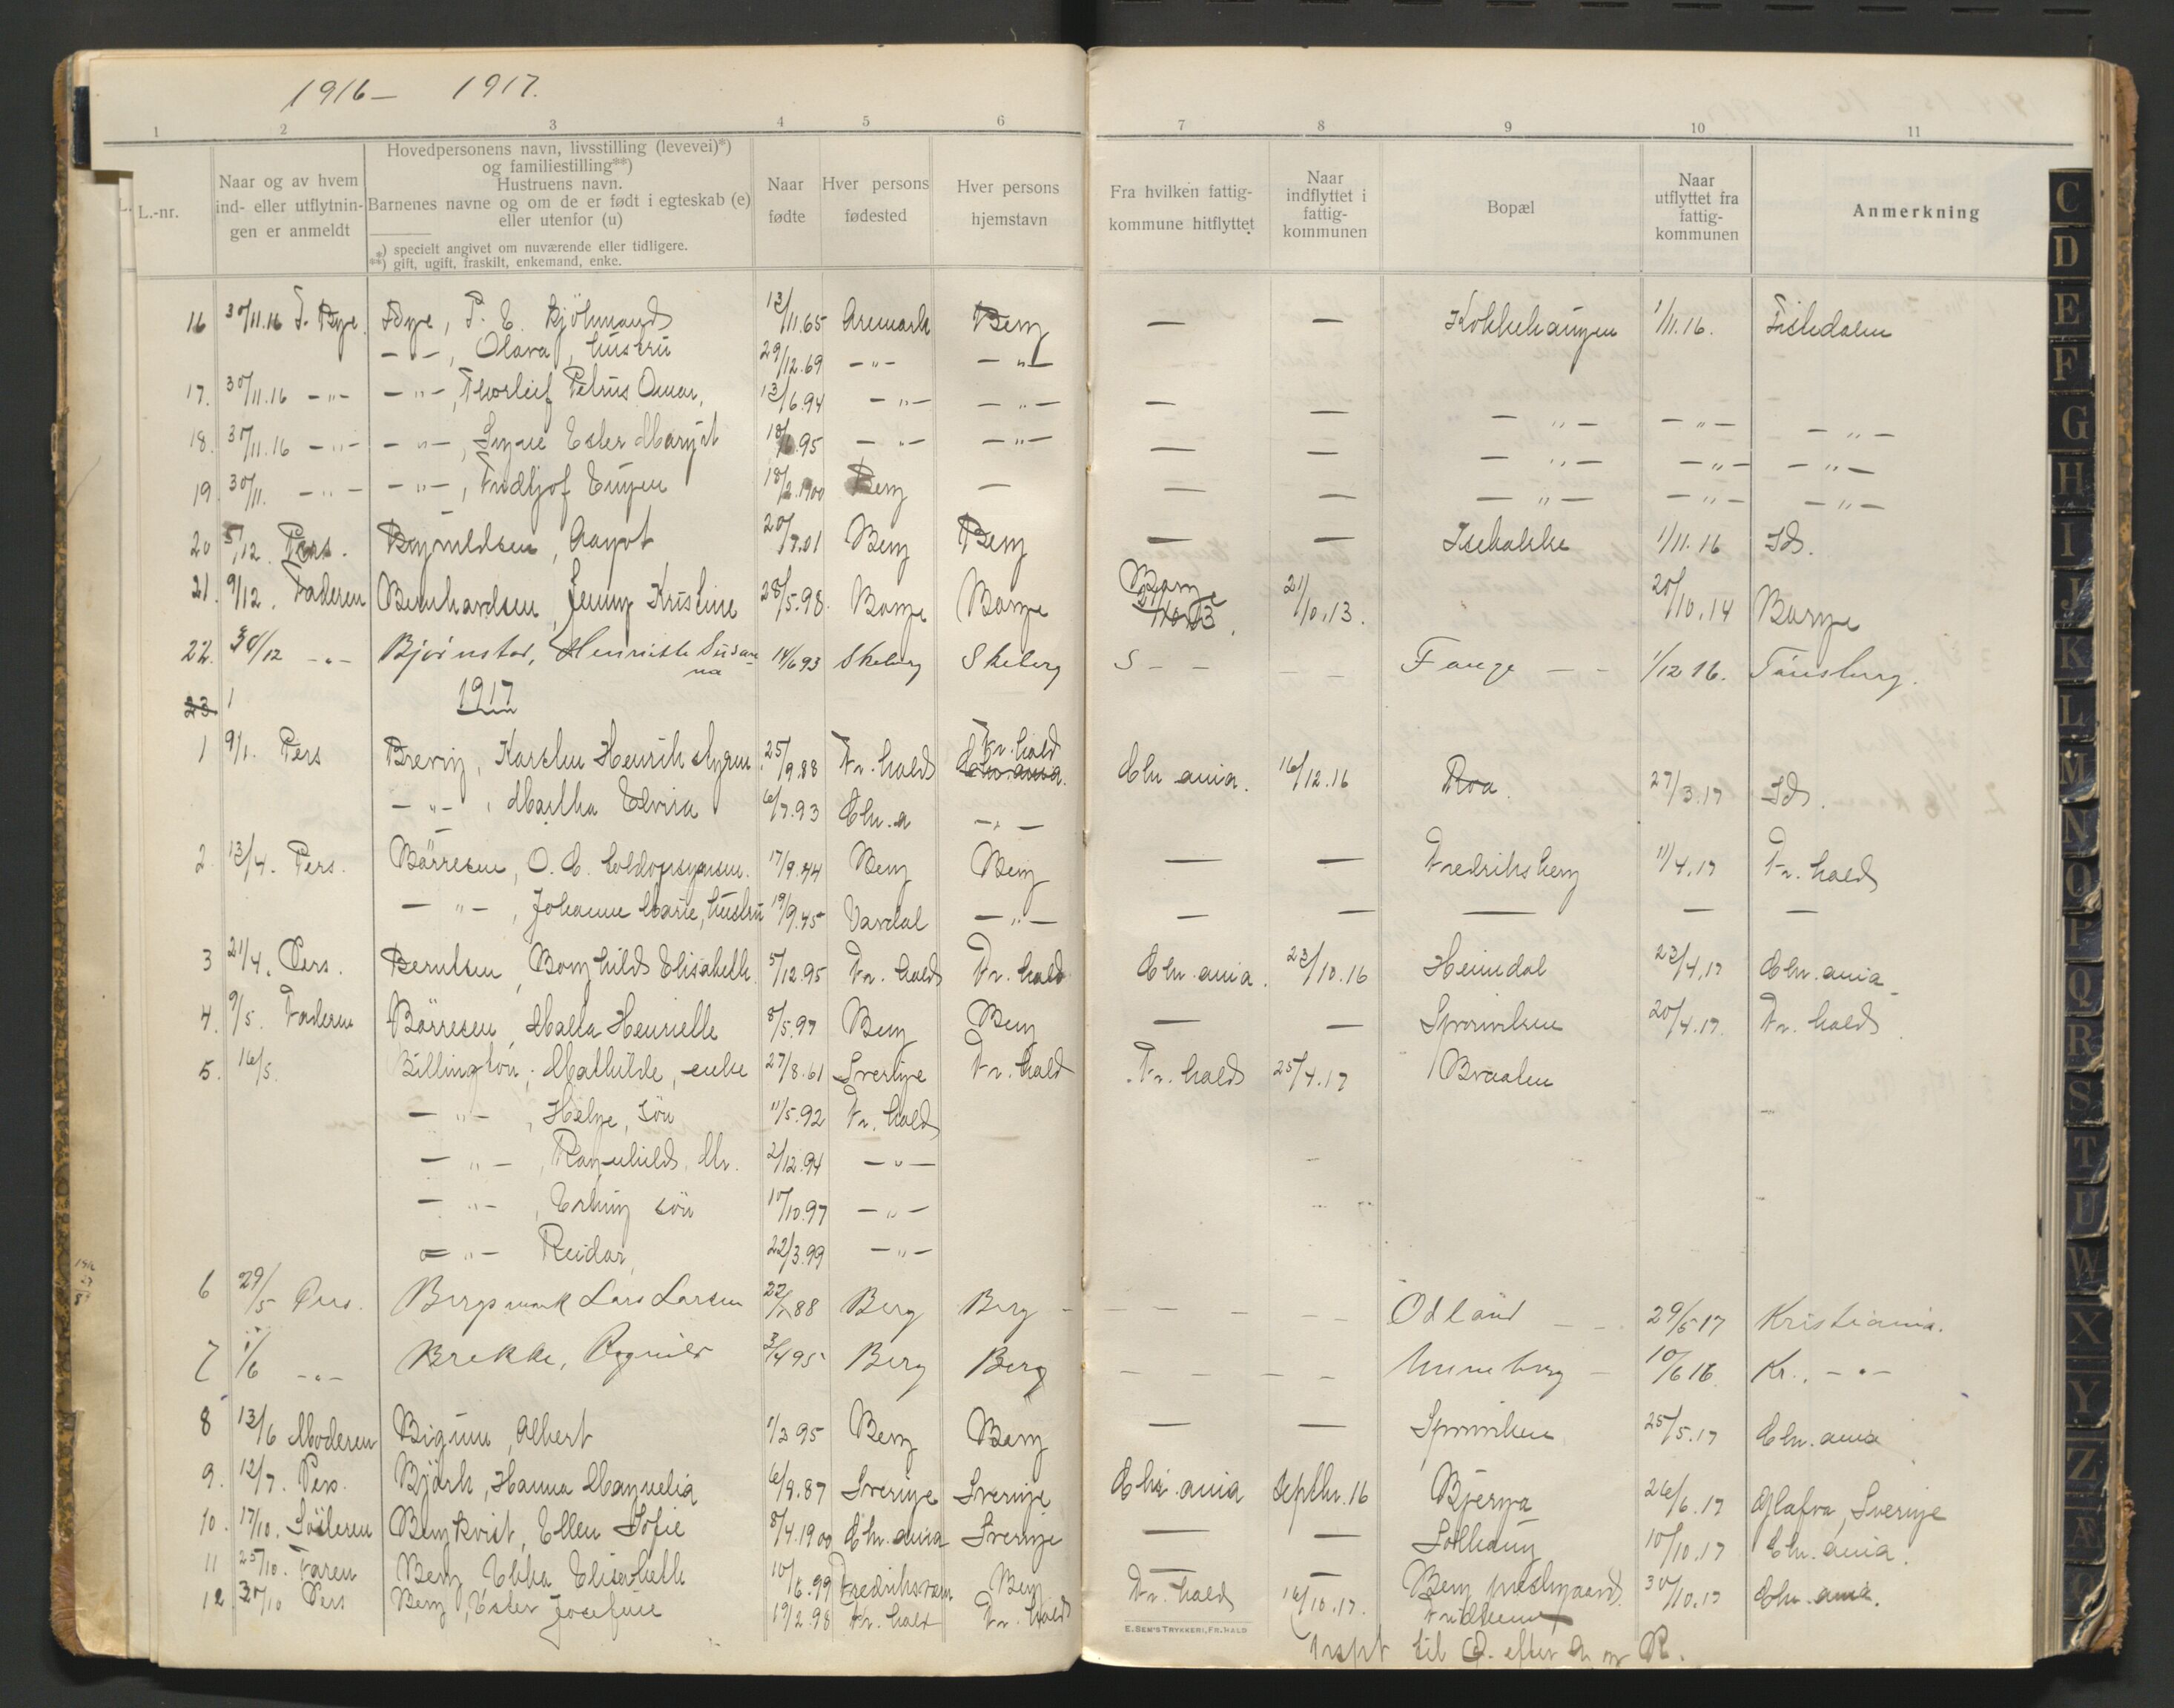 1916 — 1917.
1 2 3 4 5 6 7 8 9 10 11
L.-nr.
Naar og av hvem ind- eller utflytnin-gen er anmeldt
Hovedpersonens navn, livsstilling (levevei)*)
og familiestilling**)
Hustruens navn.
Barnenes navne og om de er født i egteskab (e)
eller utenfor (u)
*) specielt angivet om nuværende eller tidligere.
**) gift, ugift, fraskilt, enkemand, enke.
Naar fødte
Hver persons fødested
Hver persons hjemstavn
Fra hvilken fattig-kommune hitflyttet
Naar indflyttet i fattig-kommunen
Bopæl
Naar utflyttet fra fattig-kommunen
Anmerkning
16 30/11.16 P. Bye, P. E. 13/11.65 Aremark Berg — — 1/11.16.
— " —, Olava, hustru 29/12.69 — " — — " —
17. 30/11.16 — " — — " —, Thorleif Petrus Omar, 13/6.94 — " — — " — — — — " — — " — — " —
18. 30/11.16 — " — — " —, Signe Ester Margit 18/6.95 — " — — " — — — — " — — " — — " —
19. 30/11. — " — — " —, Fridtjof Eugen 18/2.1900 Berg — — — — " — — " — — " —
20 5/12. Pers. Aagot 20/7.01 Berg Berg — — 1/11.16 Ids.
21. 9/12. Faderen Bernhardsen, Jenny Kristine 28/5.98. Borge Borge Borge 21/10.13. 21/10.13. 20/10.14 Borge
22. 30/12 — " — Bjørnstad, Henriette Susanna 14/6 93 Skeberg Skeberg S — — — — Fange — — 1/12 16. Tönsberg.
23 1 1917
1 9/1. Pers Brevig, Karsten Henrik 25/9.88 Fr. hald Fr. hald Chr. ania. Chr ania. 16/12.16 Roa 27/3.17 Ids.
— " —, Martha Elvira 6/7.93 Chr. a — " —
2. 13/4. Pers. Börresen, O. C. 17/9.44 Berg Berg — — Fredriksberg 11/4.17 Fr. hald
— " —, Johanne Marie, hustru 19/9.45 Vardal — " — — — — — —
3 21/4. Pers. Berntsen, Borghild Elisabeth 5/12.95 Fr. hald Fr. hald Chr. ania. 23/10.16 Heimdal 23/4.17 Chr. ania
4. 9/5. Faderen Börresen, Marta Henriette 8/5.97 Berg Berg — — 20/4.17. Fr. hald
5. 16/5. Billington, Mathilde, enke 27/8.61 Sverige Fr. hald Fr. hald 25/4.17 Braaten
— " —, Helge, sön 11/5.92 Fr. hald
— " —, Ragnhild, dtr. 2/12.94 — " —
— " —, Erling sön 10/10.97 — " —
— " — Reidar, 22/3.99 — " —
6 29/5 Pers. Lars Larsen 88 Berg Berg — — — — — Odland — — 29/5 17 Kristiania.
7 1/6 — " — Brekke, Ragnild 3/4 95 Berg Berg — — — — Unneberg — 10/6 16 Kr. — " —
8 13/6 Moderen Albert 1/2 95 Berg Berg — — 25/5.17 Chr. ania
9. 12/7. Pers. Björk, Hanna 6/9.87 Sverige Sverige Chr. ania Septbr. 16 26/6.17 Glafva, Sverige
10. 17/10. Sösteren Bergkvist, Ellen Sofie 8/4.1900 Chr. ania Sverige — — Solhaug 10/10.17 Chr. ania.
11 25/10. Faren Berg, Ebba Elisabeth 10/6.99 Berg — — Berg prestegaard
12 30/10 Pers Berg, Ester Josefine 19/2.98 Fr. hald Fr. hald Fr. hald 16/10.17. Fridheim 30/10.17 Chr. ania.
E. SEM'S TRYKKERI, FR.HALD
til efter R.
C D E F G H I J K L M N O P Q R S T U W X Y Z Æ Ø